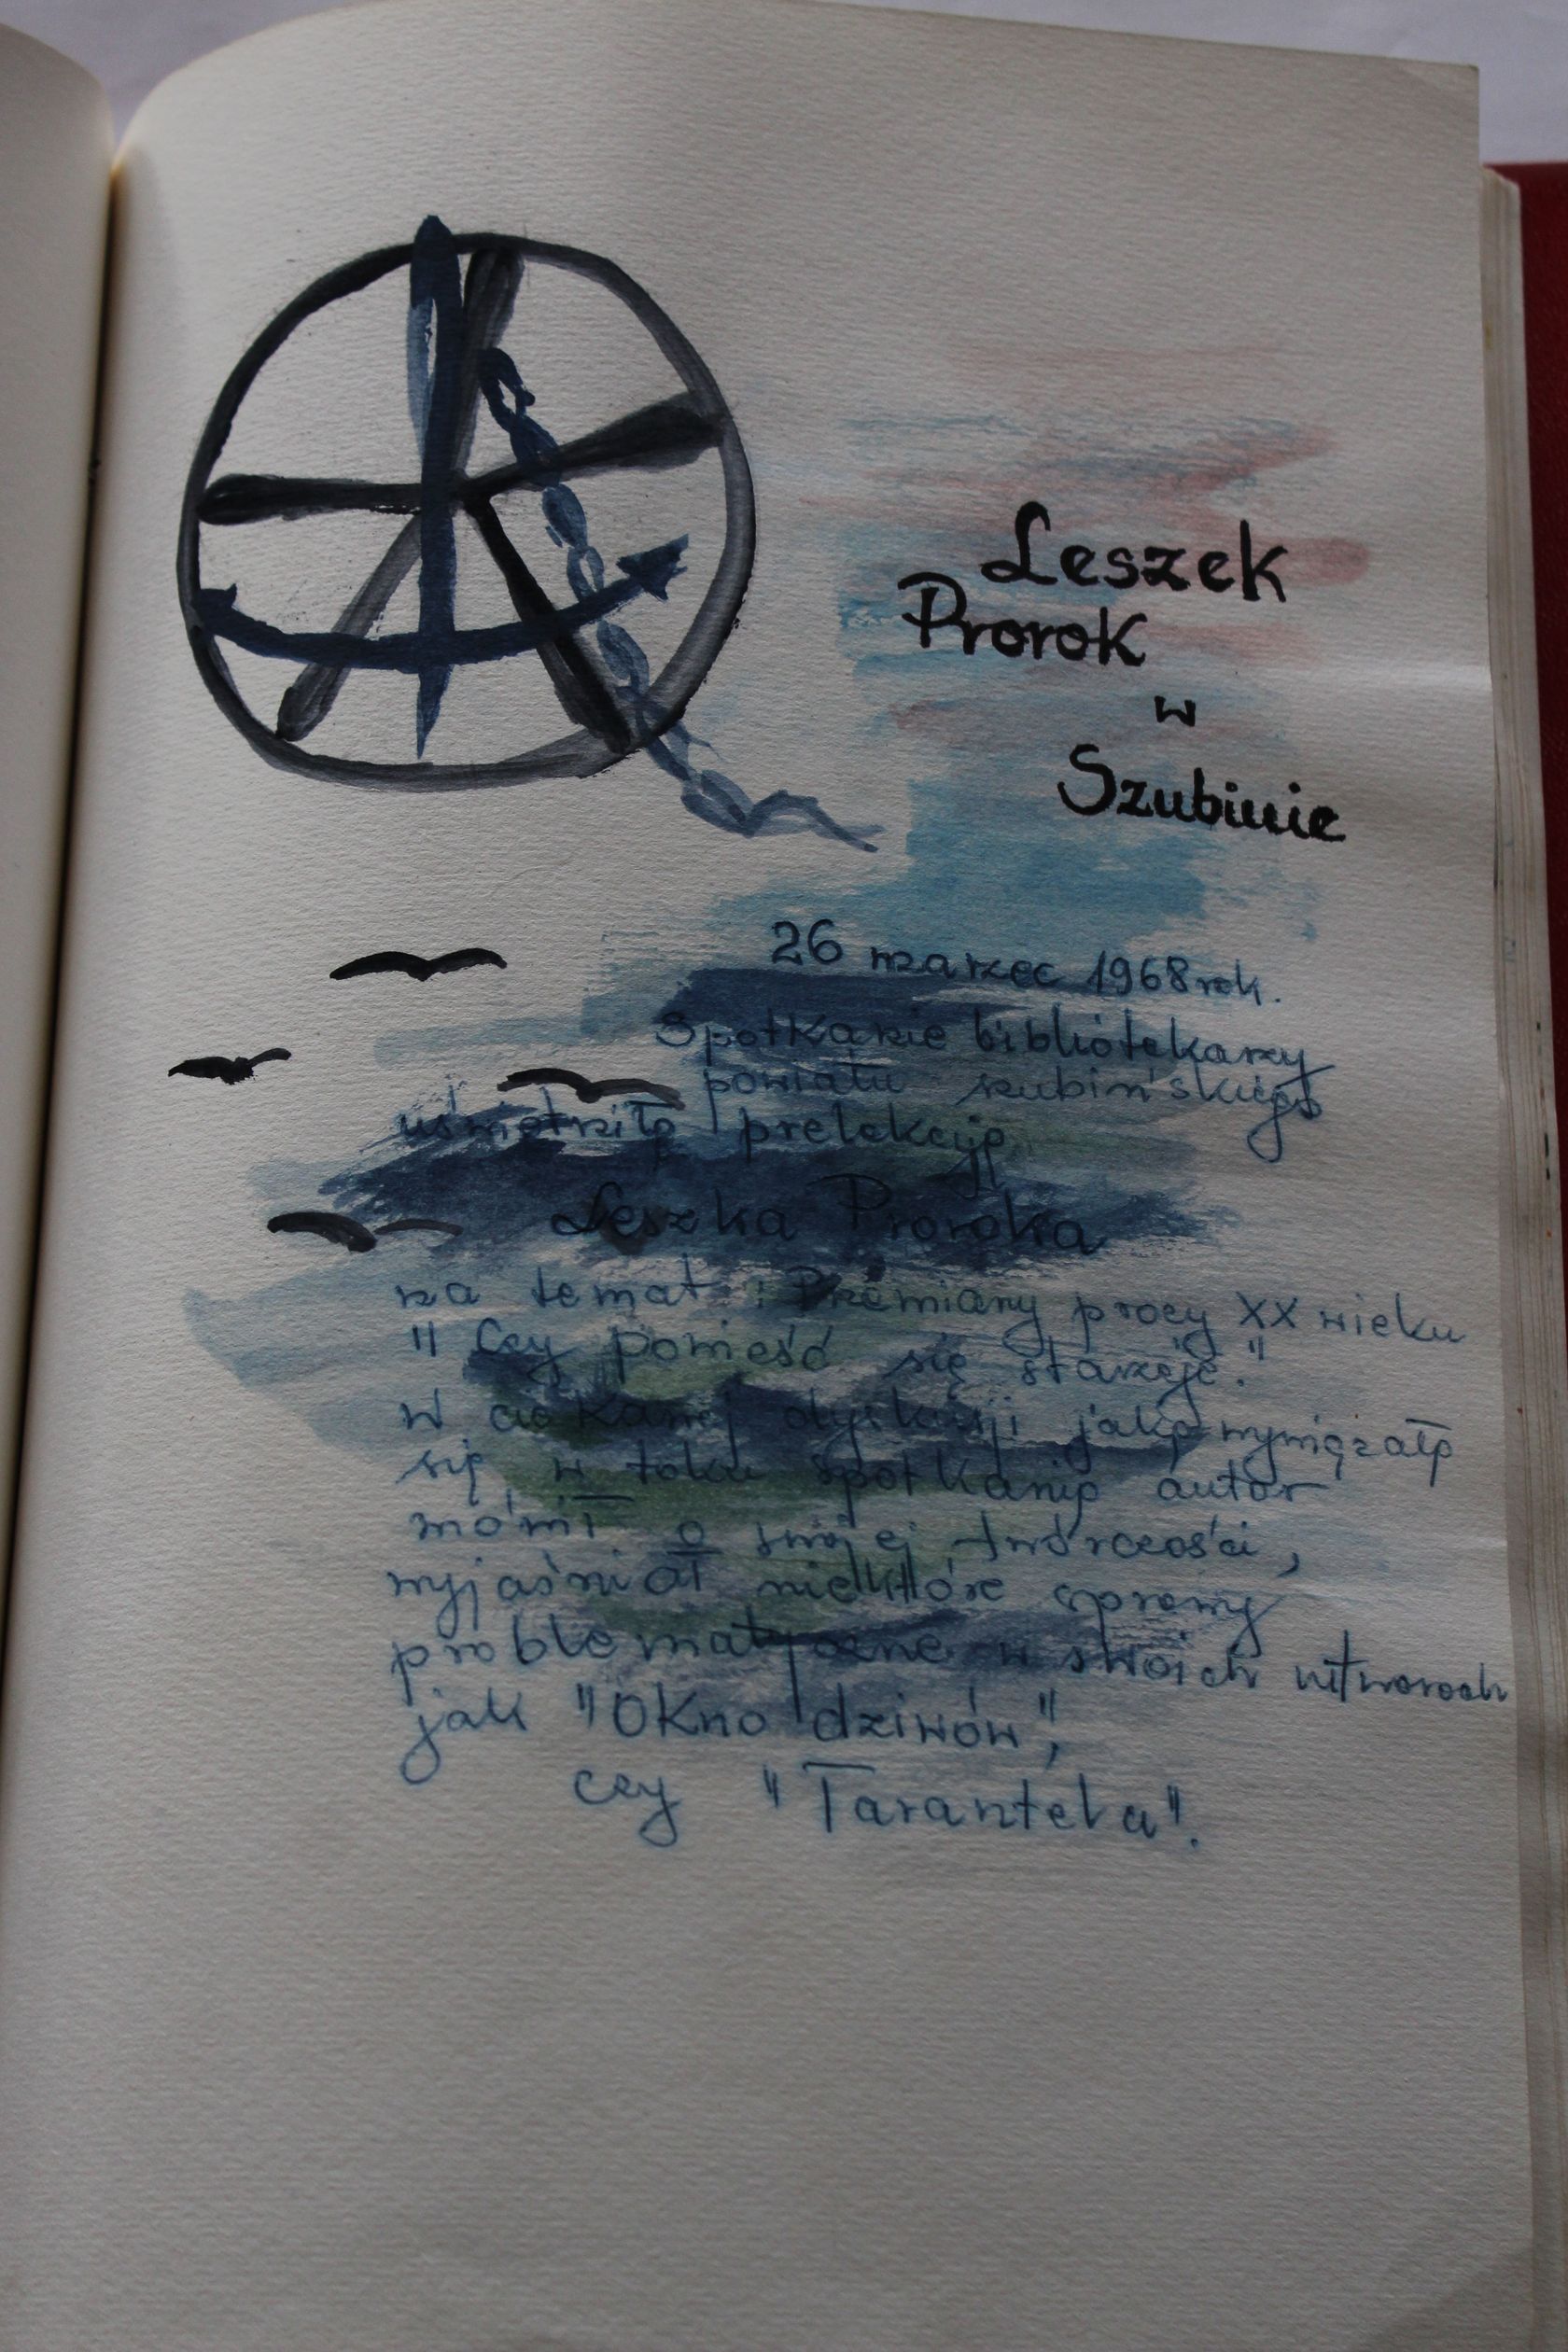 Leszek
Prorok
w
Szubinie
26 marzec 1968 rok.
Spotkanie bibliotekarzy
powiatu szubińskiego
uświetniła prelekcja
Leszka Proroka
na temat: Przemiany prozy XX wieku
"Czy powieść się starzeje."
W ciekawej dyskusji jaka wywiązała
się w toku spotkania autor
mówił o swojej twórczości,
wyjaśniał niektóre sprawy
problematyczne w swoich utworach
jak "Okno dziwów",
czy "Tarantela".